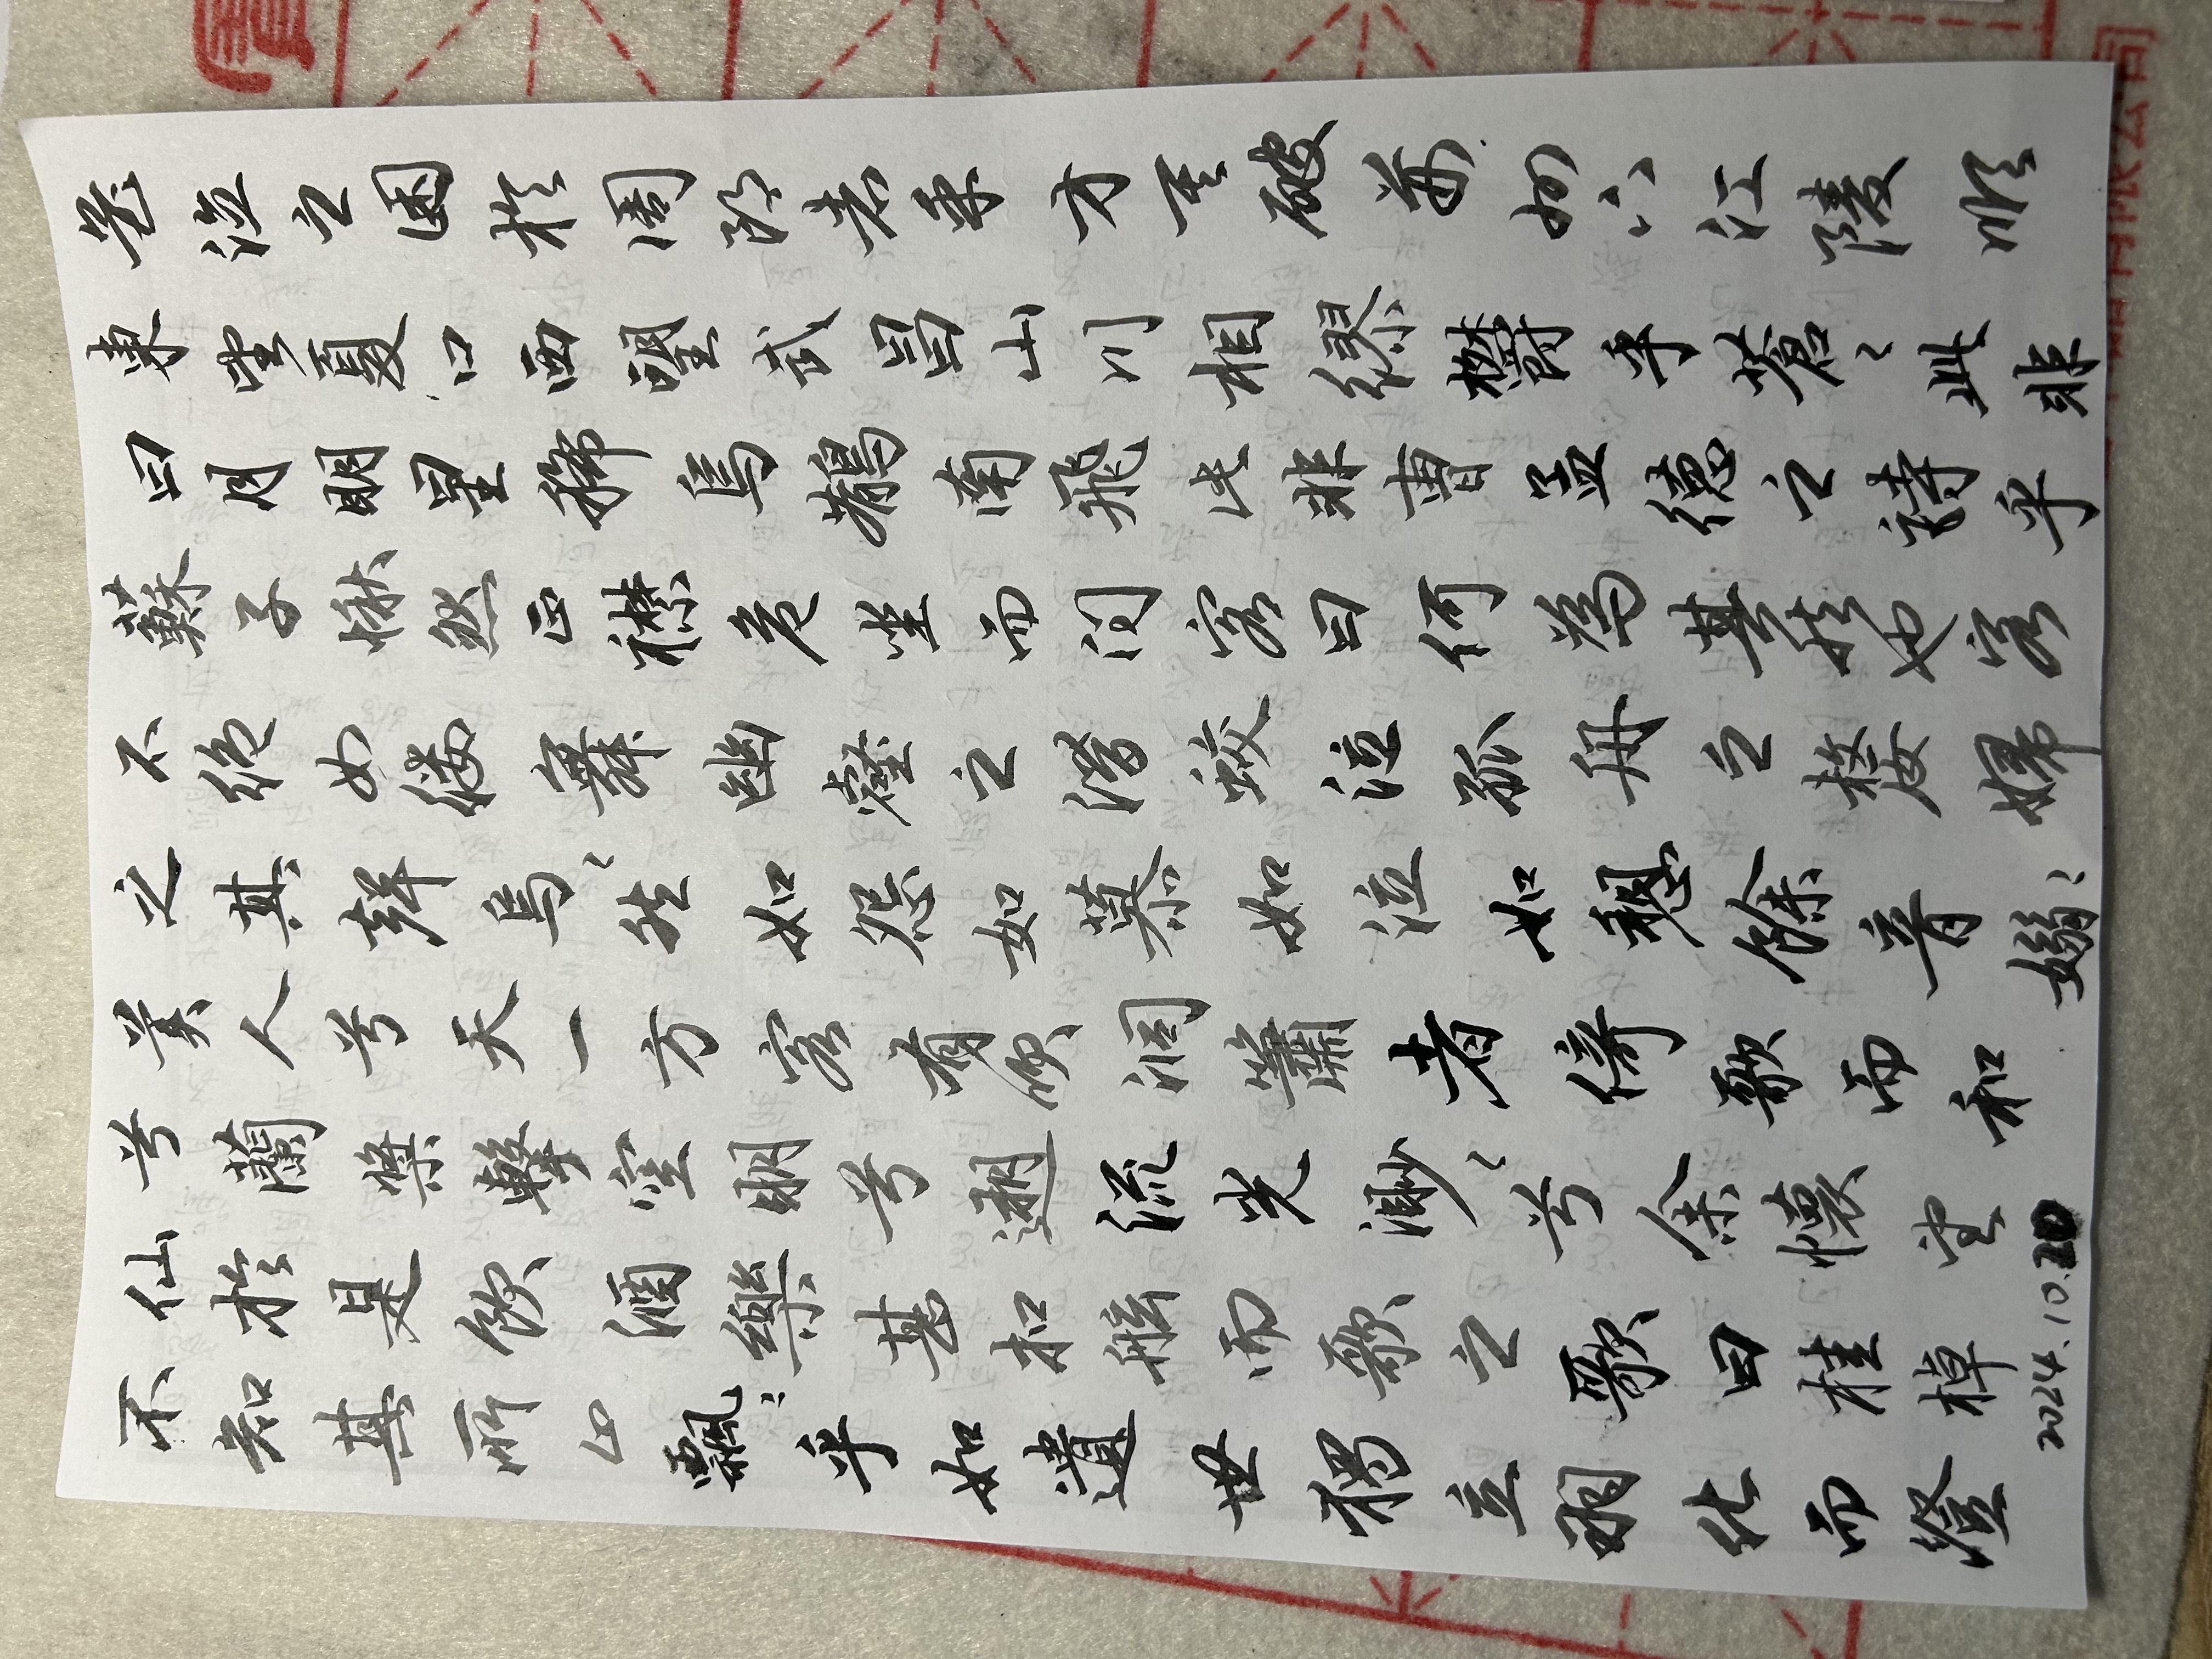 不知其所止飄々乎如遺世獨立羽化而登
仙於是飲酒樂甚扣舷而歌之歌曰桂棹
兮蘭槳擊空明兮遡流光渺々兮余懷望
美人兮天一方客有吹洞簫者倚歌而和
之其聲烏々然如怨如慕如泣如愬餘音嫋々
不絕如縷舞幽壑之潛蛟泣孤舟之嫠婦
蘇子愀然正襟危坐而問客曰何為其然也客
曰月明星稀烏鵲南飛此非曹孟德之詩乎
東望夏口西望武昌山川相繆鬱乎蒼々此非
孟德之困於周郎者乎方其破荊州下江陵順
2024.10.20
寶
有限公司